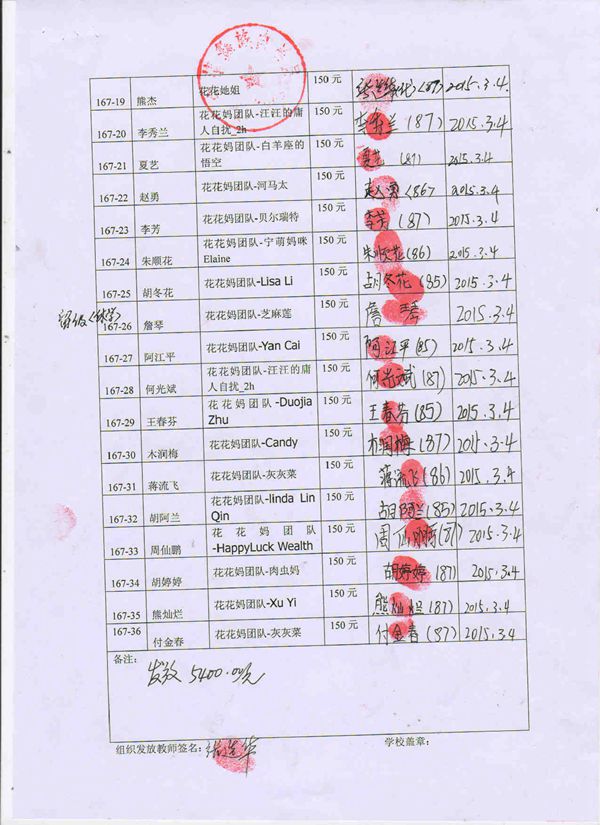 167-19 熊杰 花花她姐 150 元 (87) 2015.3.4.
167-20 李秀兰 花花妈团队-汪汪的庸 150 元 李秀兰 (87) 2015.3.4
人自扰_2h
167-21 夏艺 花花妈团队-白羊座的 150 元 夏艺 (87) 2015.3.4
悟空
167-22 赵勇 花花妈团队-河马太 150 元 赵勇 (86) 2015.3.4
167-23 李芳 花花妈团队-贝尔瑞特 150 元 李芳 (87) 2015.3.4
167-24 朱顺花 花花妈团队-宁萌妈咪 150 元 朱顺花 (86) 2015.3.4
Elaine
167-25 胡冬花 花花妈团队-Lisa Li 150 元 胡冬花 (85) 2015.3.4
167-26 詹琴 花花妈团队-芝麻莲 150 元 詹琴 2015.3.4
167-27 阿江平 花花妈团队-Yan Cai 150 元 阿江平 (85) 2015.3.4
167-28 何光斌 花花妈团队-汪汪的庸 150 元 何光斌 (87) 2015.3.4
人自扰_2h
167-29 王春芬 花花妈团队-Duojia 150 元 王春芬 (85) 2015.3.4
Zhu
167-30 木润梅 花花妈团队-Candy 150 元 木润梅 (87) 2015.3.4
167-31 蒋流飞 花花妈团队-灰灰菜 150 元 蒋流飞 (86) 2015.3.4
167-32 胡阿兰 花花妈团队-linda Lin 150 元 胡阿兰 (85) 2015.3.4
Qin
167-33 周仙鹏 花花妈团队 150 元 周仙鹏 (87) 2015.3.4
-HappyLuck Wealth
167-34 胡婷婷 花花妈团队-肉虫妈 150 元 胡婷婷 (87) 2015.3.4
167-35 熊灿烂 花花妈团队-Xu Yi 150 元 熊灿烂 (87) 2015.3.4
167-36 付金春 花花妈团队-灰灰菜 150 元 付金春 (87) 2015.3.4
备注：
发放 5400.00元
组织发放教师签名： 学校盖章：